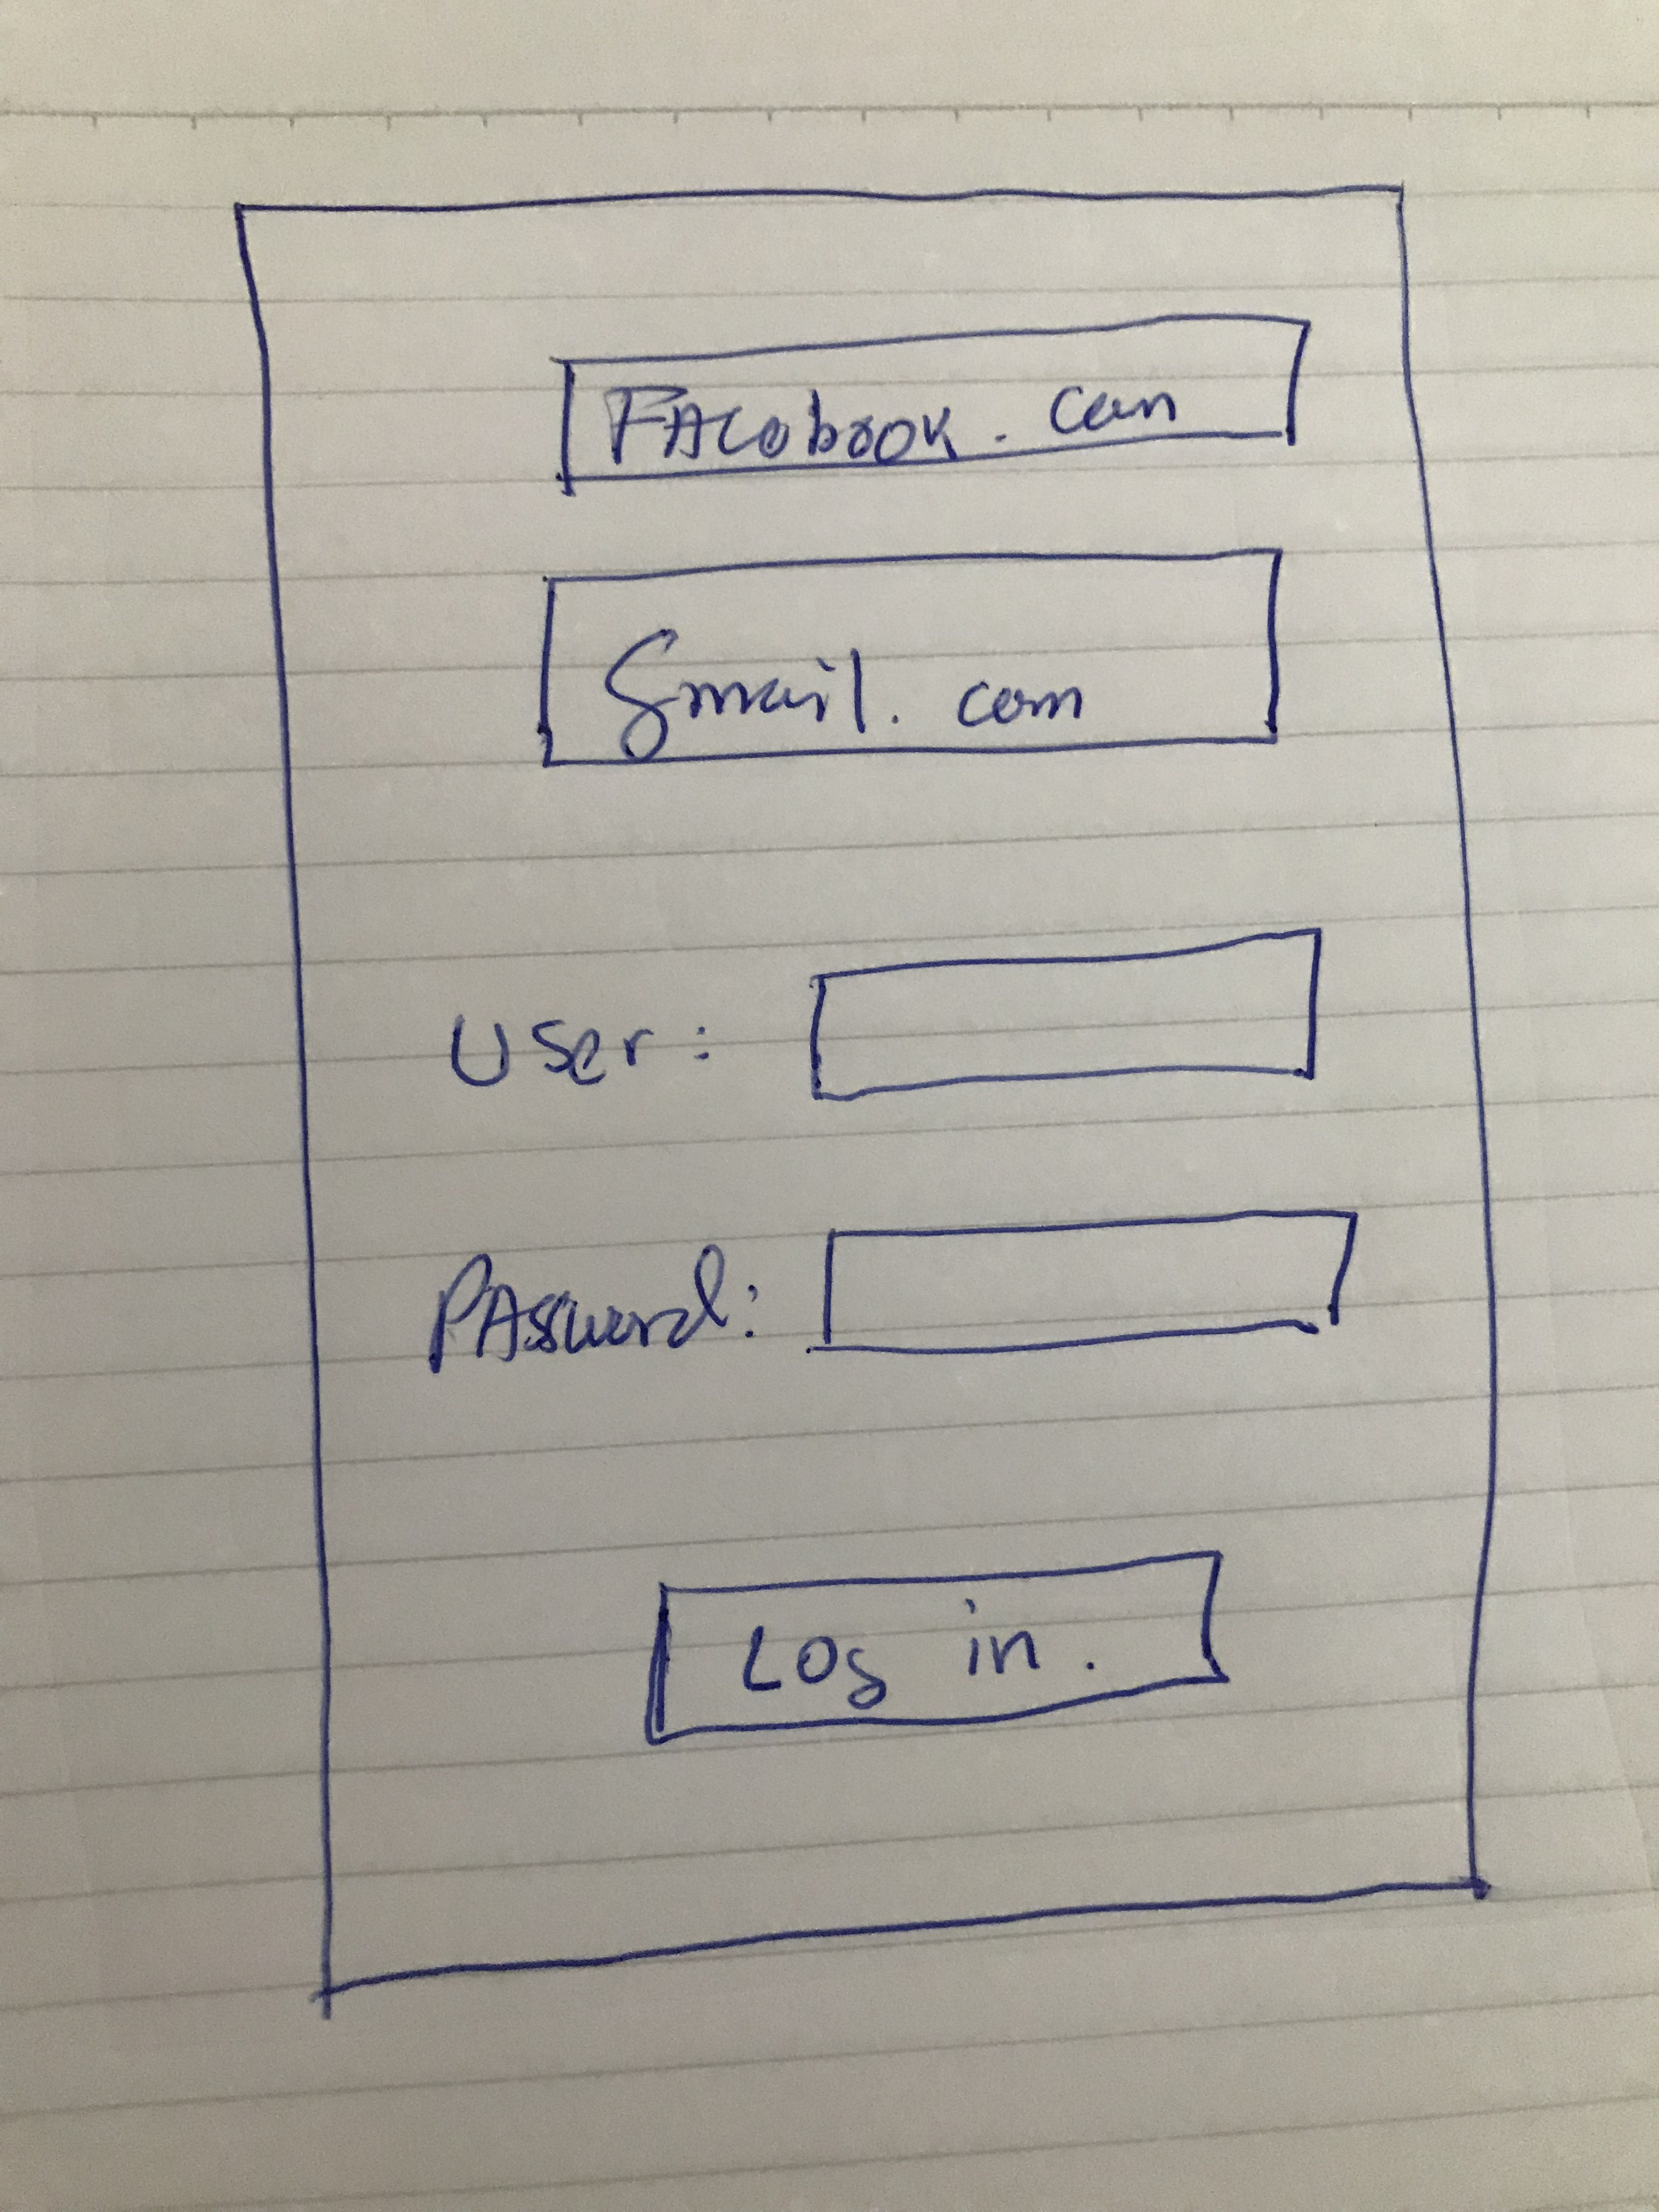 Facebook. com
Gmail. com
User:
PAssword:
Log in.